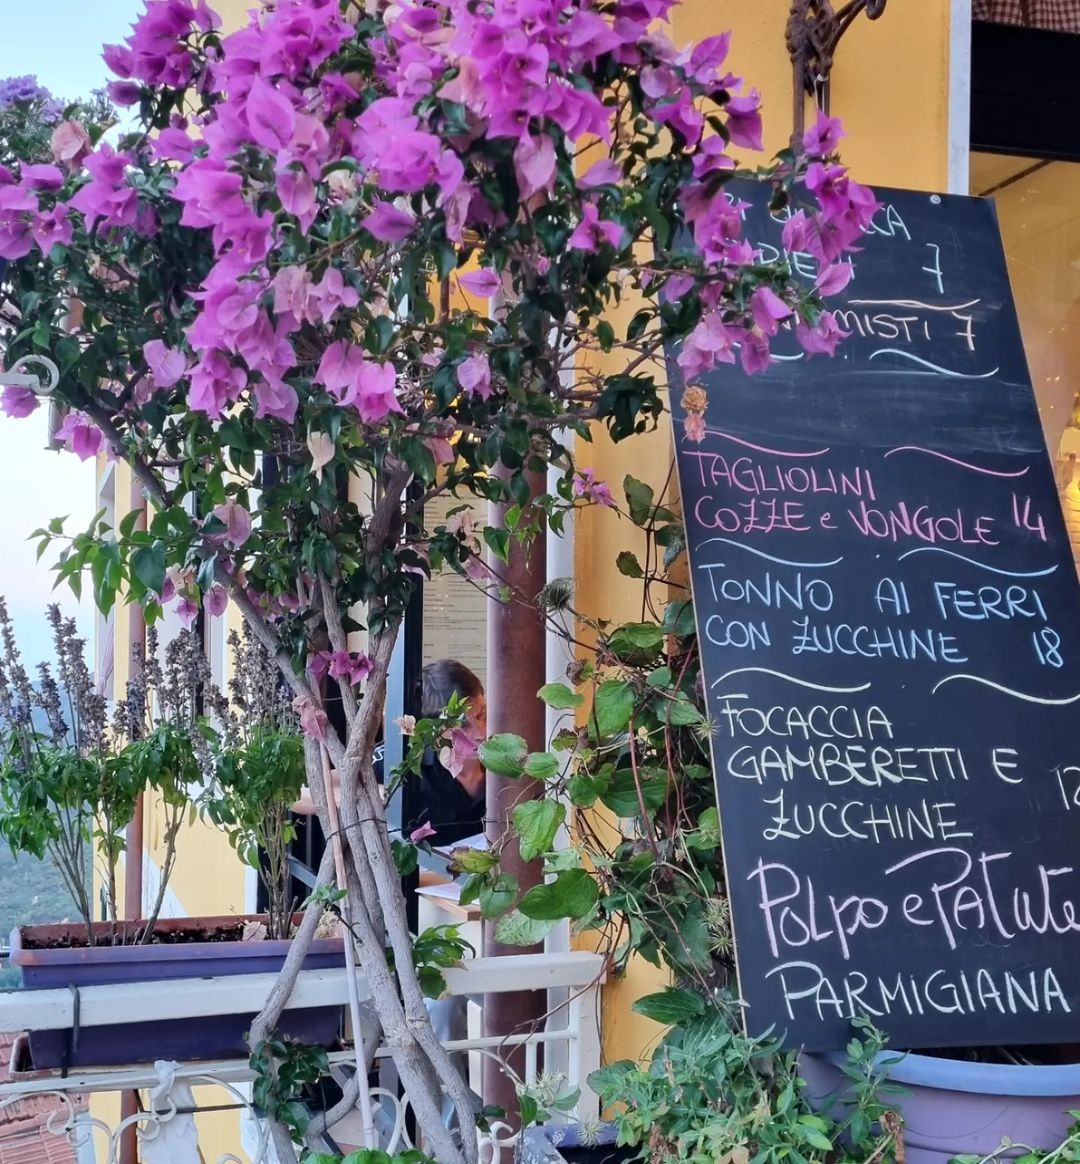 7
MISTI 7
TAGLIOLINI
COZZE e VONGOLE 14
TONNO AI FERRI
CON ZUCCHINE 18
FOCACCIA
GAMBERETTI E
ZUCCHINE
POLPO e PATATE
PARMIGIANA